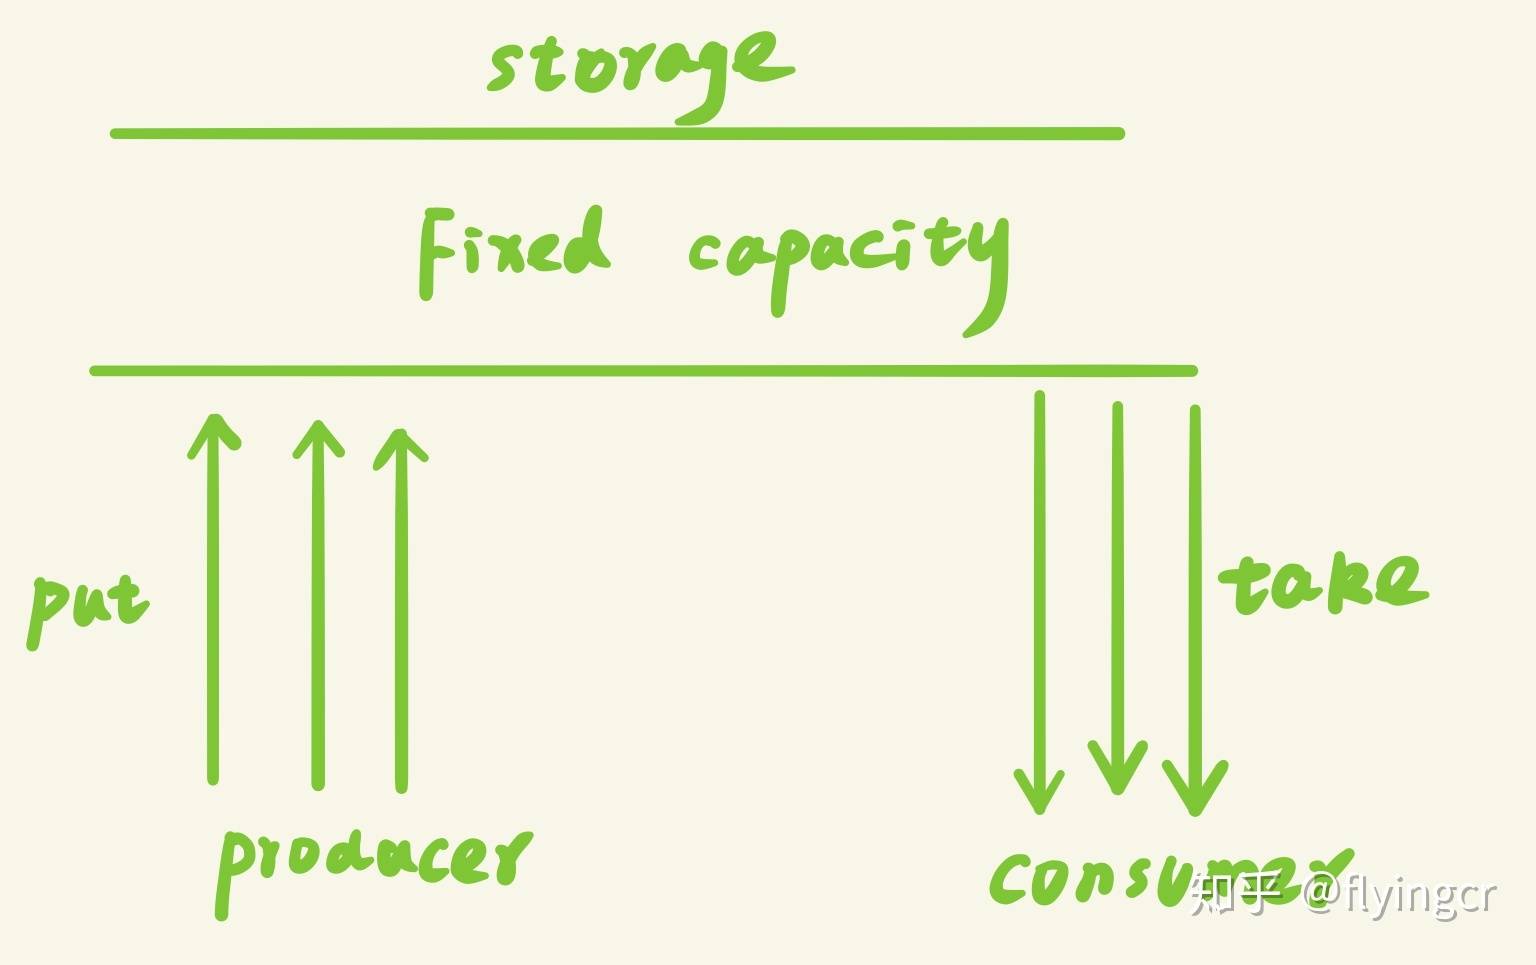 storage
Fixed capacity
put
take
producer
consumer
知乎 @flyingcr